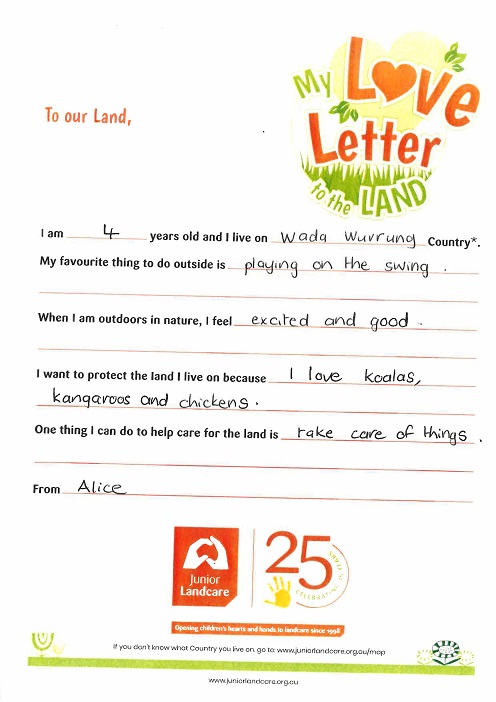 My Love
Letter
to the LAND
To our Land,
I am 4 years old and I live on Wada Wurrung Country*.
My favourite thing to do outside is playing on the swing.
When I am outdoors in nature, I feel excited and good.
I want to protect the land I live on because I love koalas,
kangaroos and chickens.
One thing I can do to help care for the land is take care of things.
From Alice
Junior
Landcare
25 YEARS
CELEBRATING
Opening children's hearts and hands to landcare since 1998
If you don't know what Country you live on, go to: www.juniorlandcare.org.au/map
www.juniorlandcare.org.au